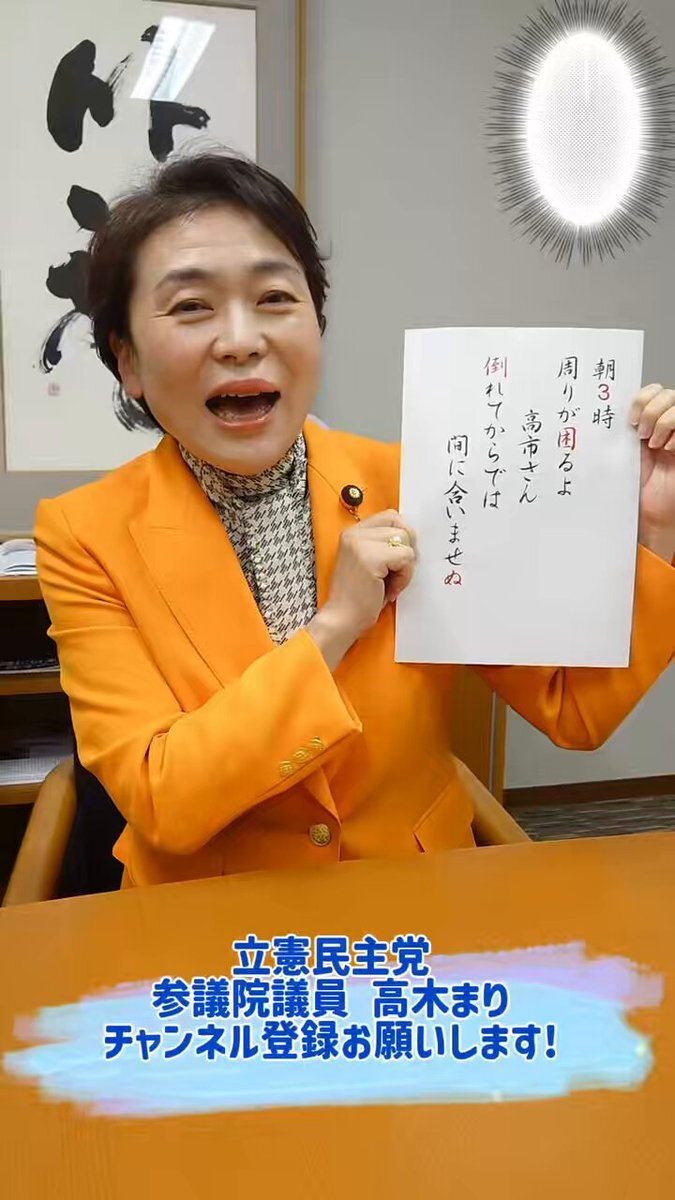 朝3時
周りが困るよ
高市さん
倒れてからでは
間に合いませぬ
立憲民主党
参議院議員 高木まり
チャンネル登録お願いします!